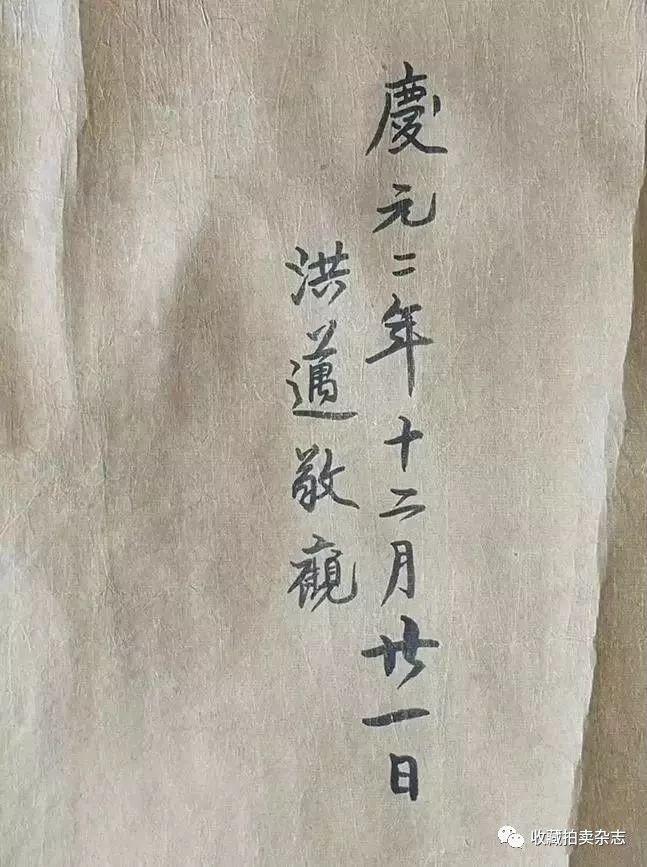 慶元二年十二月廿一日
洪邁敬觀
收藏拍卖杂志